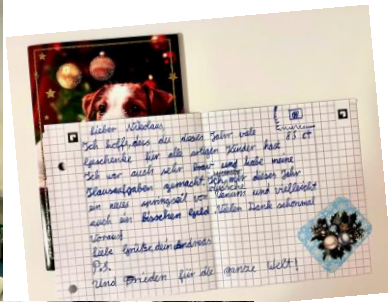 Lieber Nikolaus,
Ich hoffe, dass du dieses Jahr viele
Geschenke für alle artigen Kinder hast
Ich war auch sehr brav und habe meine
Hausaufgaben gemacht. Ich wünsche mir dieses Jahr
ein neues springseil von und vielleicht
auch ein bisschen Geld. Vielen Dank schonmal
Voraus!
Liebe Grüße, dein Andreas
P.S.
Und Frieden für die ganze Welt!
85 ct